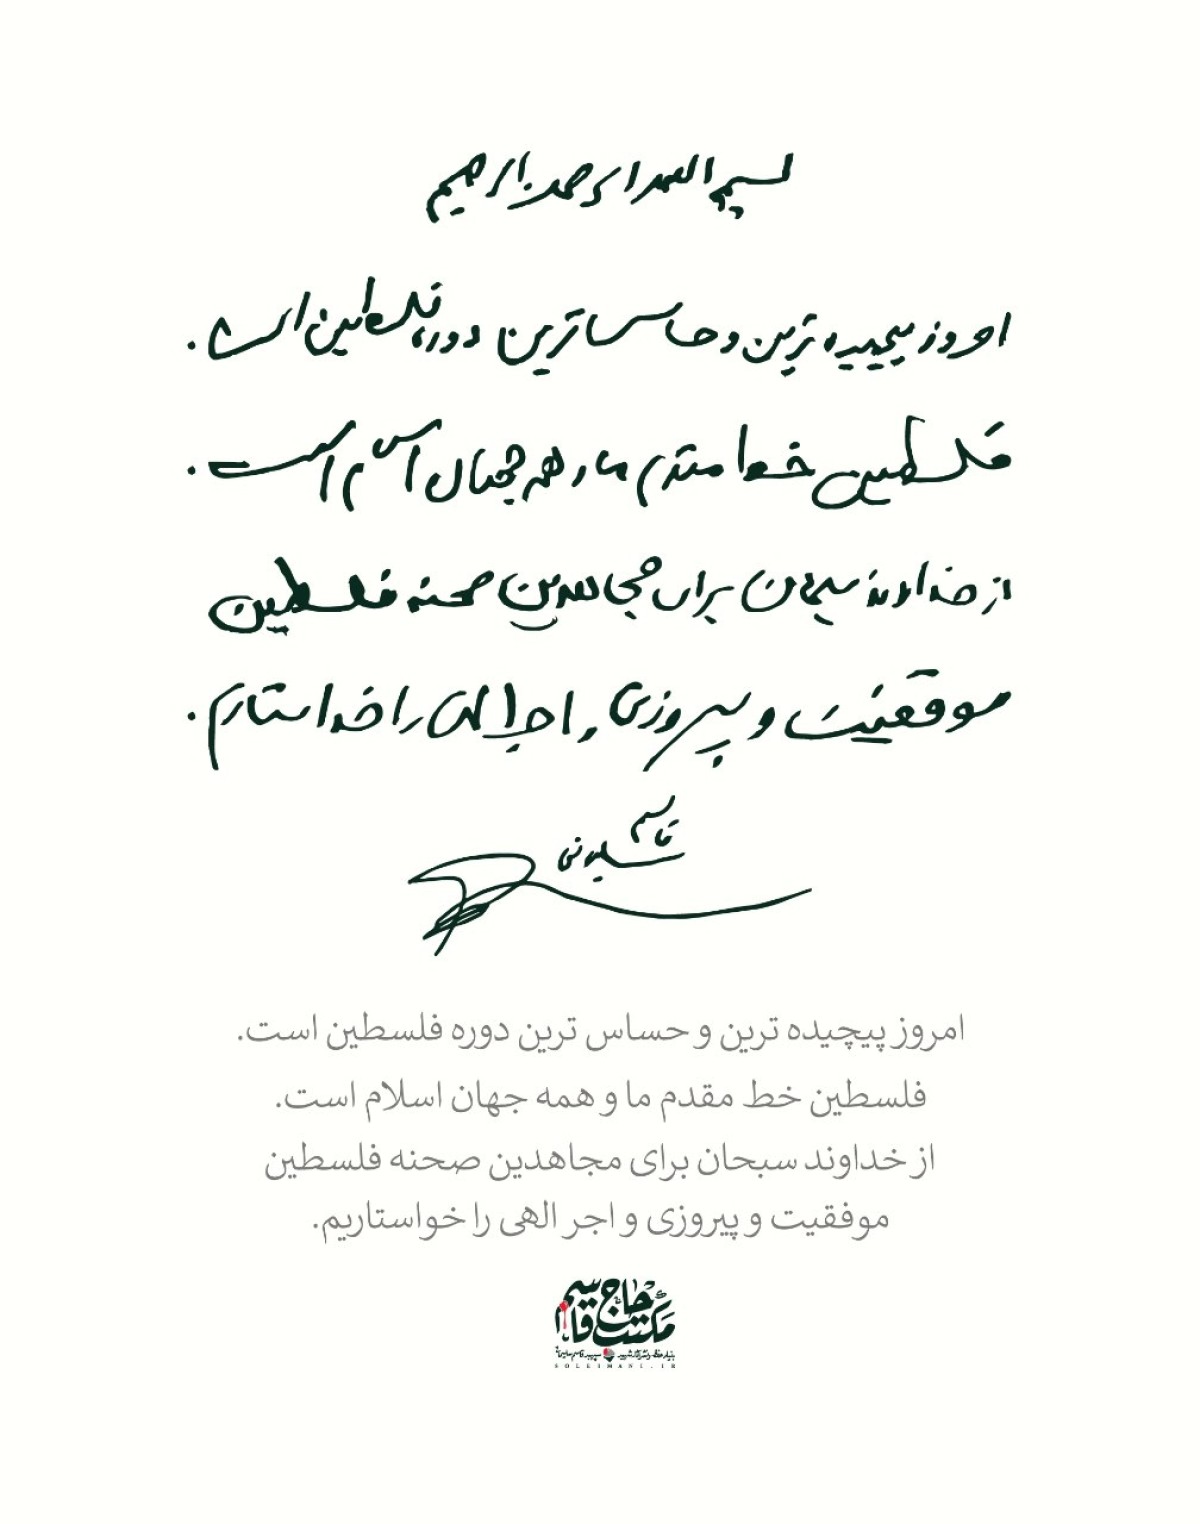 بسم الله الرحمن الرحیم
امروز پیچیده ترین و حساس ترین دوره فلسطین است.
فلسطین خط مقدم ما و همه جهان اسلام است.
از خداوند سبحان برای مجاهدین صحنه فلسطین
موفقیت و پیروزی و اجر الهی را خواستاریم.
قاسم
سلیمانی
امروز پیچیده ترین و حساس ترین دوره فلسطین است.
فلسطین خط مقدم ما و همه جهان اسلام است.
از خداوند سبحان برای مجاهدین صحنه فلسطین
موفقیت و پیروزی و اجر الهی را خواستاریم.
مکتب حاج قاسم
بنیاد حفظ و نشر آثار شهید سپهبد قاسم سلیمانی
SOLEIMANI.IR